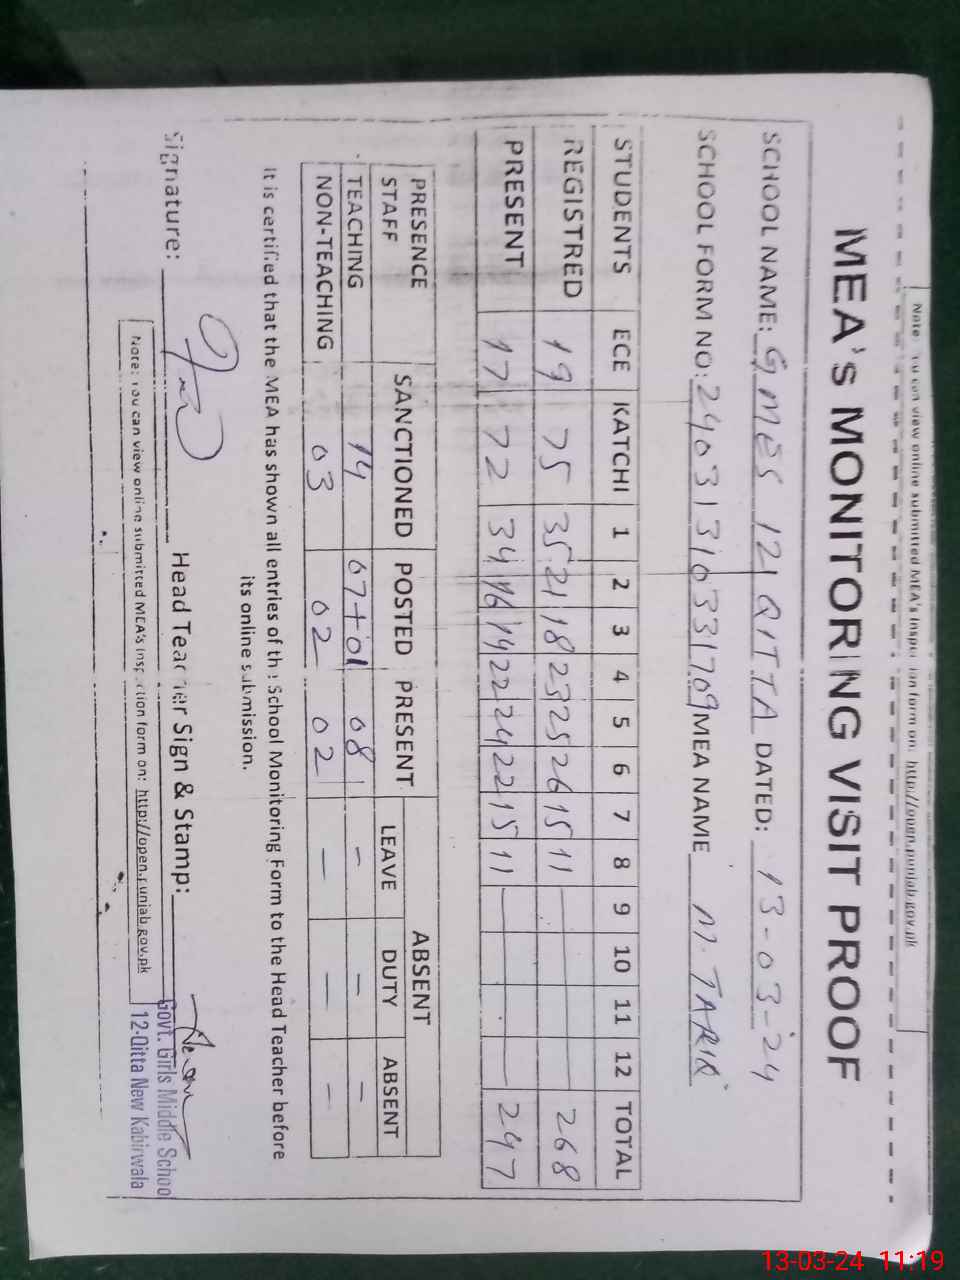 Note: You can view online submitted MEA's Inspection form on: http://open.punjab.gov.pk
MEA's MONITORING VISIT PROOF
SCHOOL NAME: GMES 121 QITTA DATED: 13-03-24
SCHOOL FORM NO: MEA NAME M. TARIQ
STUDENTS ECE KATCHI 1 2 3 4 5 6 7 8 9 10 11 12 TOTAL
REGISTRED 19 75 35 21 18 23 25 26 15 11 268
PRESENT 17 72 34 16 14 22 24 22 15 11 247
PRESENCE STAFF SANCTIONED POSTED PRESENT ABSENT
LEAVE DUTY ABSENT
TEACHING 14 07+01 08 - - -
NON-TEACHING 03 02 02 - - -
It is certified that the MEA has shown all entries of the School Monitoring Form to the Head Teacher before
its online submission.
Signature: Head Teacher Sign & Stamp:
Govt. Girls Middle School
12-Qitta New Kabirwala
Note: You can view online submitted MEA's Inspection form on: http://open.punjab.gov.pk
13-03-24 11:19